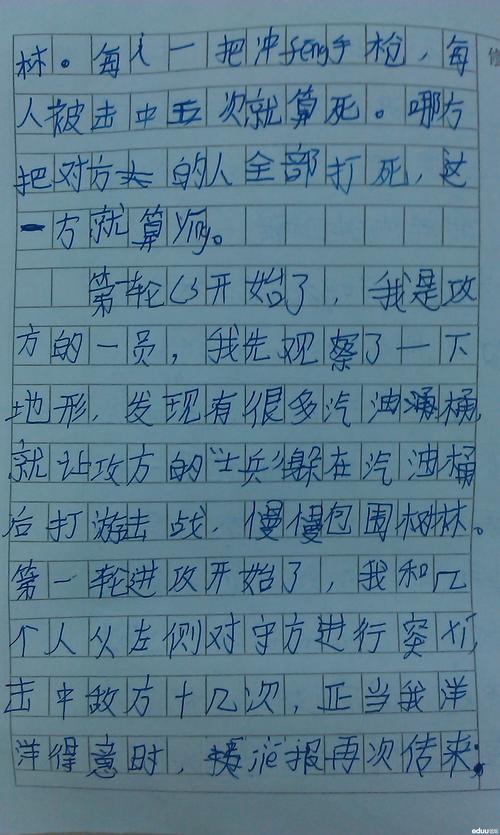 林。每人一把冲feng手枪，每
人被击中五次就算死。哪方
把对方的人全部打死，这
一方就算ying。
第一轮CS开始了，我是攻
方的一员，我先观察了一下
地形，发现有很多汽油桶，
就让攻方的“士兵”躲在汽油桶
后打游击战，慢慢包围树林。
第一轮进攻开始了，我和几
个人从左侧对守方进行突xi，
击中敌方十几次，正当我洋
洋得意时，jie报再次传来，
eduu